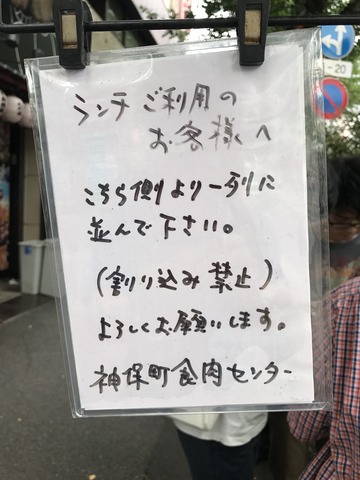 ランチご利用の
お客様へ
こちら側より一列に
並んで下さい。
(割り込み禁止)
よろしくお願いします。
神保町食肉センター
-20